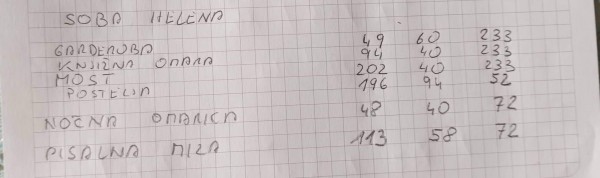 SOBA HELENA
GARDEROBA 49 60 233
KNJIŽNA OMARA 94 40 233
MOST 202 40 233
POSTELJA 196 94 52
NOČNA OMARICA 48 40 72
PISALNA MIZA 113 58 72